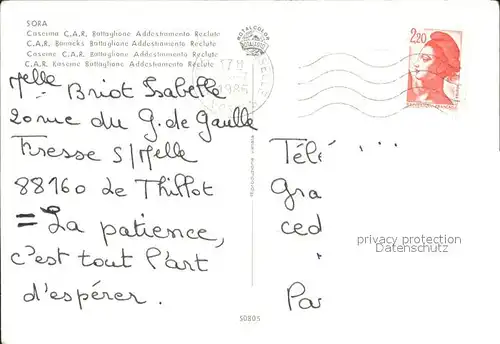 SORA
Caserma C.A.R. Battaglione Addestramento Reclute
C.A.R. Barracks Battaglione Addestramento Reclute
Caserne C.A.R. Battaglione Addestramento Reclute
C.A.R. Kaserne Battaglione Addestramento Reclute
ROTALCOLOR
17H
1986
2,20
Melle Briot Isabelle
20 rue du G. de Gaulle
Fresse S/Melle
88160 Le Thillot
= La patience,
c'est tout l'art
d'espérer.
Tél
Gra
ced
Par
privacy protection
Datenschutz
Riproduzione vietata
50805